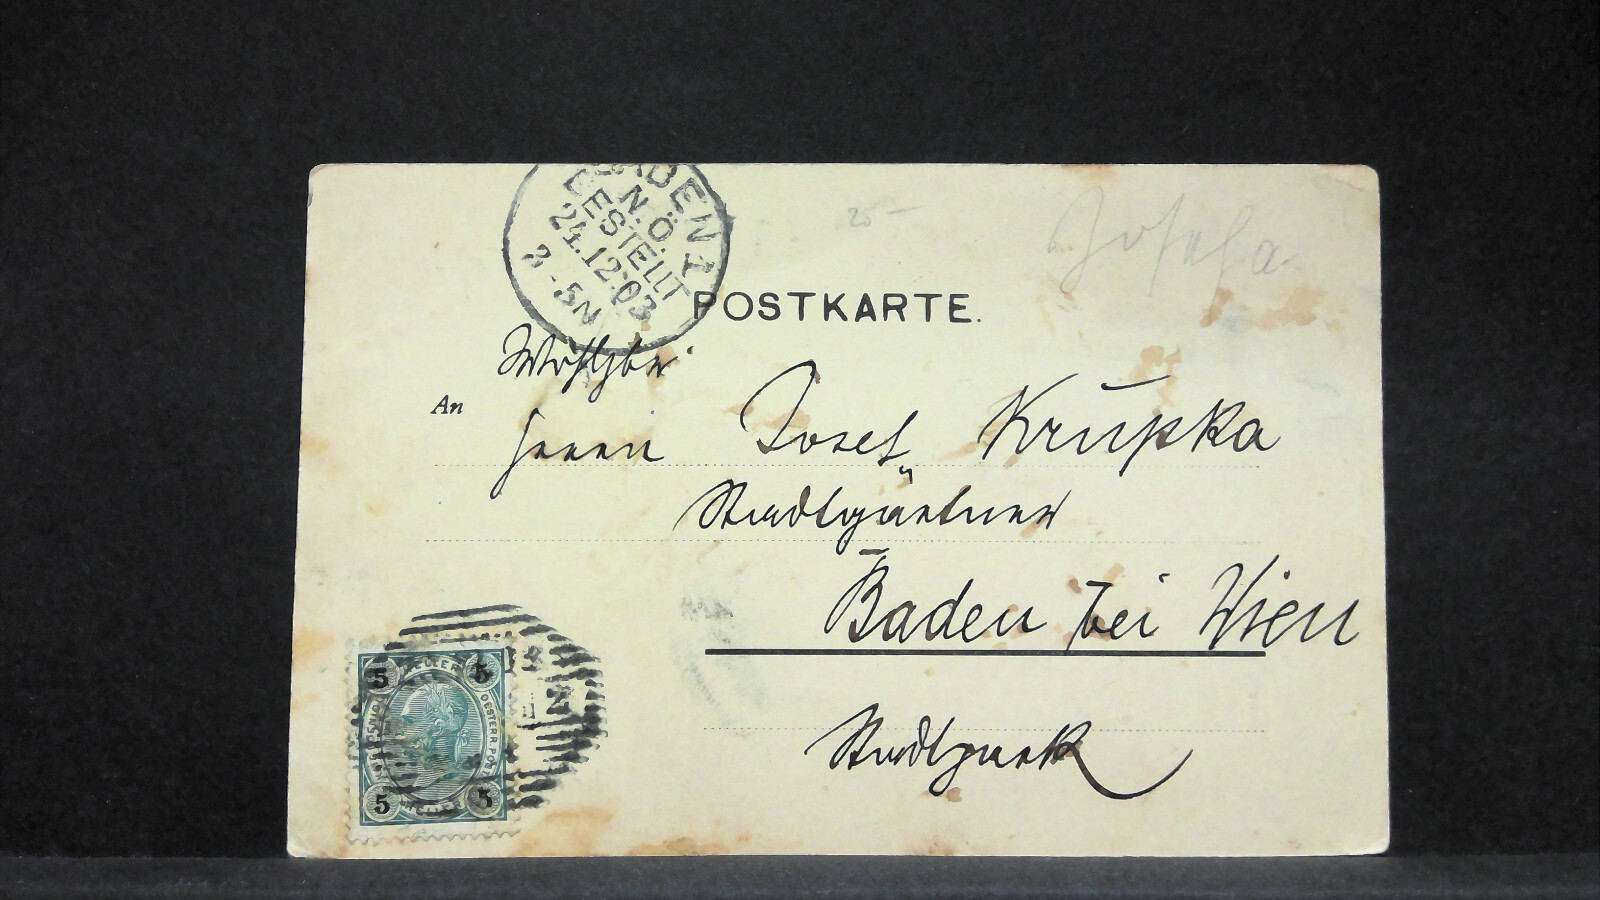 BADEN 1
N.Ö.
BESTELLT
24.12.03
3-5N
20 —
Josefa
POSTKARTE.
Wohlgeb.
An
Herrn Josef Krupka
Stadtgärtner
Baden bei Wien
Stadtpark
5 HELLER 5
OESTERR. POST
5 HELLER 5